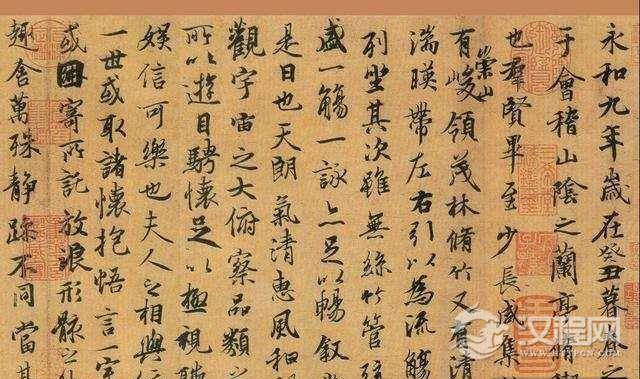 永和九年歲在癸丑暮春之
于會稽山陰之蘭亭
也羣賢畢至少長咸集
有崇山峻領茂林脩竹又有清
湍暎帶左右引以為流觴
列坐其次雖無絲竹管弦
盛一觴一詠亦足以暢叙
是日也天朗氣清惠風和
觀宇宙之大俯察品類之
所以遊目騁懷足以極視聽
娛信可樂也夫人之相與
一世或取諸懷抱悟言一室
或因寄所託放浪形骸之
趣舍萬殊靜躁不同當其
汉程网